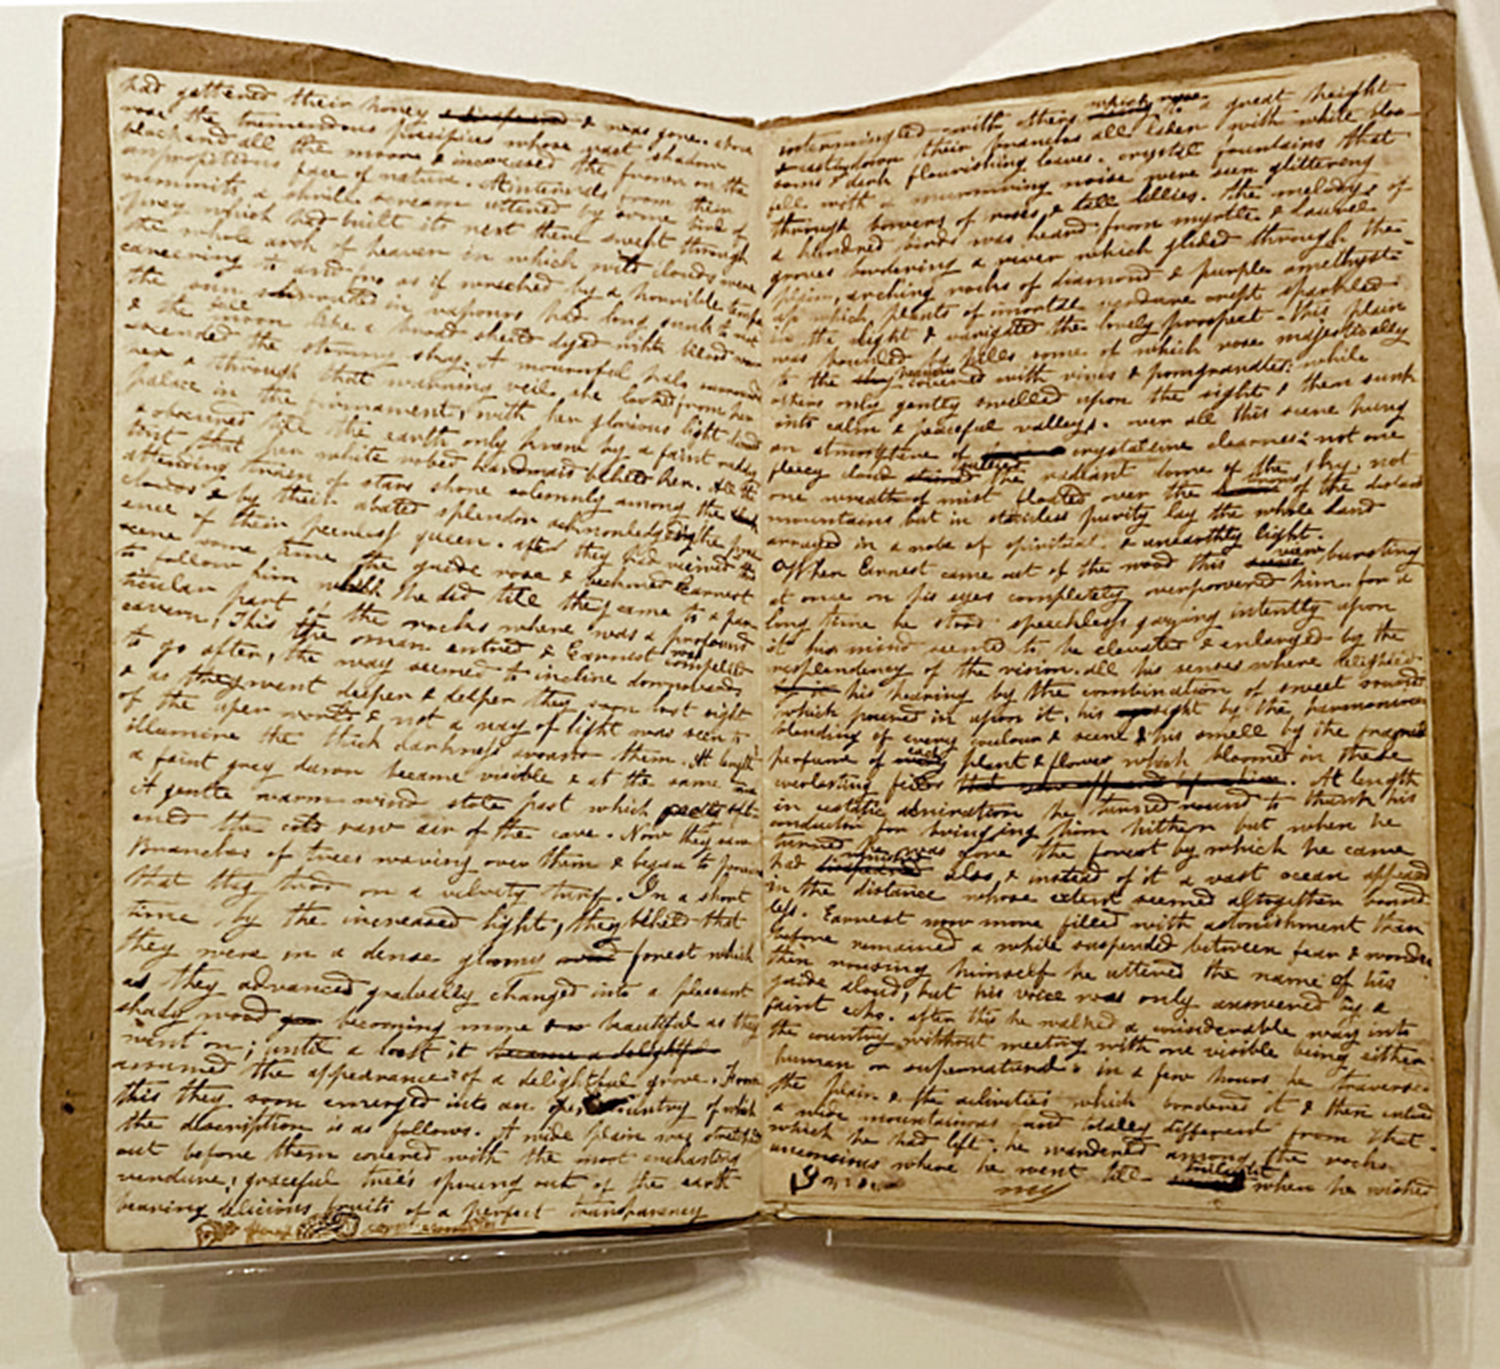 had gathered their honey & was gone. above
rose the tremendous precipices whose vast shadow
blackend all the moon & increased the frown on the
unpropitious face of nature. At intervals from their
summits a shrill scream uttered by some bird of
prey which had built its nest there swept through
the whole arch of heaven in which wild clouds were
careering to and fro as if wracked by a horrible tempe
the sun in vapours had long sunk to rest
& the moon like a broad shield dyed with blood
ascended the stormy sky. A mournful halo surround
her & through that warning veil she looked from her
palace in the firmament, with her glorious light
obscured till the earth only knew by a faint ruddy
tint that her white robed handmaid beheld her. All the
attending train of stars shone solemnly among the
clouds & by their abated splendor acknowledged the pres
ence of their peerless queen. after they had viewed the
scene some time the guide rose & beckoned Earnest
to follow him which he did till they came to a par
ticular part of the rocks where was a profound
cavern, This the man entired & Earnest was compelled
to go after, the way seemed to incline downwards
& as they went deeper & deeper they soon lost sight
of the uper world & not a ray of light was seen to
illumine the thick darkness around them. At length
a faint grey dawn became visible & at the same time
A gentle warm wind stole past which soft
ened the cold raw air of the cave. Now they saw
Branches of trees waving over them & began to perceive
that they trod on a velvety turf. In a short
time by the increased light, they beheld that
they were in a dense gloomy wood forest which
as they advanced gradually changed into a pleasant
shady wood becoming more beautiful as they
went on; until a last it became a delightful
assumed the appearance of a delightful grove. From
this they soon emerged into an open country of which
the description is as follows. A wide plain was stretched
out before them covered with the most enchanting
verdure; graceful trees sprung out of the earth
bearing delicious fruits of a perfect transparency
intermingled with others which rose to a great height
& casting down their branches all laden with white blos
soms & dark flourishing leaves. crystal fountains that
fell with a murmuring noise were seen glittering
through bowers of roses & tall lillies. the melody of
a hundred birds was heard from myrtle & Laurel
groves bordering a river which glided through the
plain, arching rocks of diamond & purple amethyst
up which plants of imortal verdure crept sparkled
in the light & varigated the lovely prospect - this plain
was bounded by hills some of which rose majestically
to the heavens covered with vines & pomgranates: while
others only gently swelled upon the sight & then sunk
into calm & peaceful valleys. over all this scene hung
an atmosphere of crystalline clearness: not one
fleecy cloud sullied the radiant dome of the sky, not
one wreath of mist floated over the of the distant
mountains but in stainless purity lay the whole land
arrayed in a robe of spiritual & unearthly light.
When Earnest came out of the wood this view bursting
at once on his eyes completely overpowered him. for a
long time he stood speechless gazing intently upon
it his mind seemed to be elevated & enlarged by the
resplendency of the vision. all his senses where delighted
his hearing by the combination of sweet sounds
which poured in upon it, his sight by the harmonious
blending of every coulour & scene & his smell by the fragrant
perfume of each plant & flower which bloomed in these
everlasting fields that were offered before him. At length
in extatic admiration he turned round to thank his
conductor for bringing him hither but when he
turned he was gone the forest by which he came
had vanished also & instead of it a vast ocean appeared
in the distance whose extent seemed altogether bound
less. Earnest now more filled with astonishment than
before remained a while suspended between fear & wonder
then rousing himself he uttered the name of his
guide aloud, but his voice was only answered by a
faint echo. after this he walked a considerable way into
the country without meeting with one visible being either
human or supernatural. in a few hours he traversed
the plain & the acclivities which bordered it & then entred
a more mountainous land totally different from that
which he had left. he wandered among the rocks
unconsious where he went till twilight when he wished